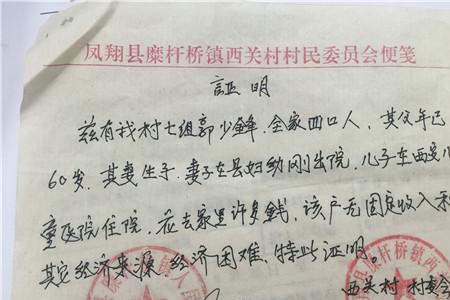 凤翔县糜杆桥镇西关村村民委员会便笺
証明
兹有我村七组郭少锋.全家四口人,其父年已
60岁.其妻生子.妻子在县妇幼刚出院,儿子在西安儿
童医院住院,花去家里许多钱,该户无固定收入和
其它经济来源 经济困难、特此证明。
西关村 村委会